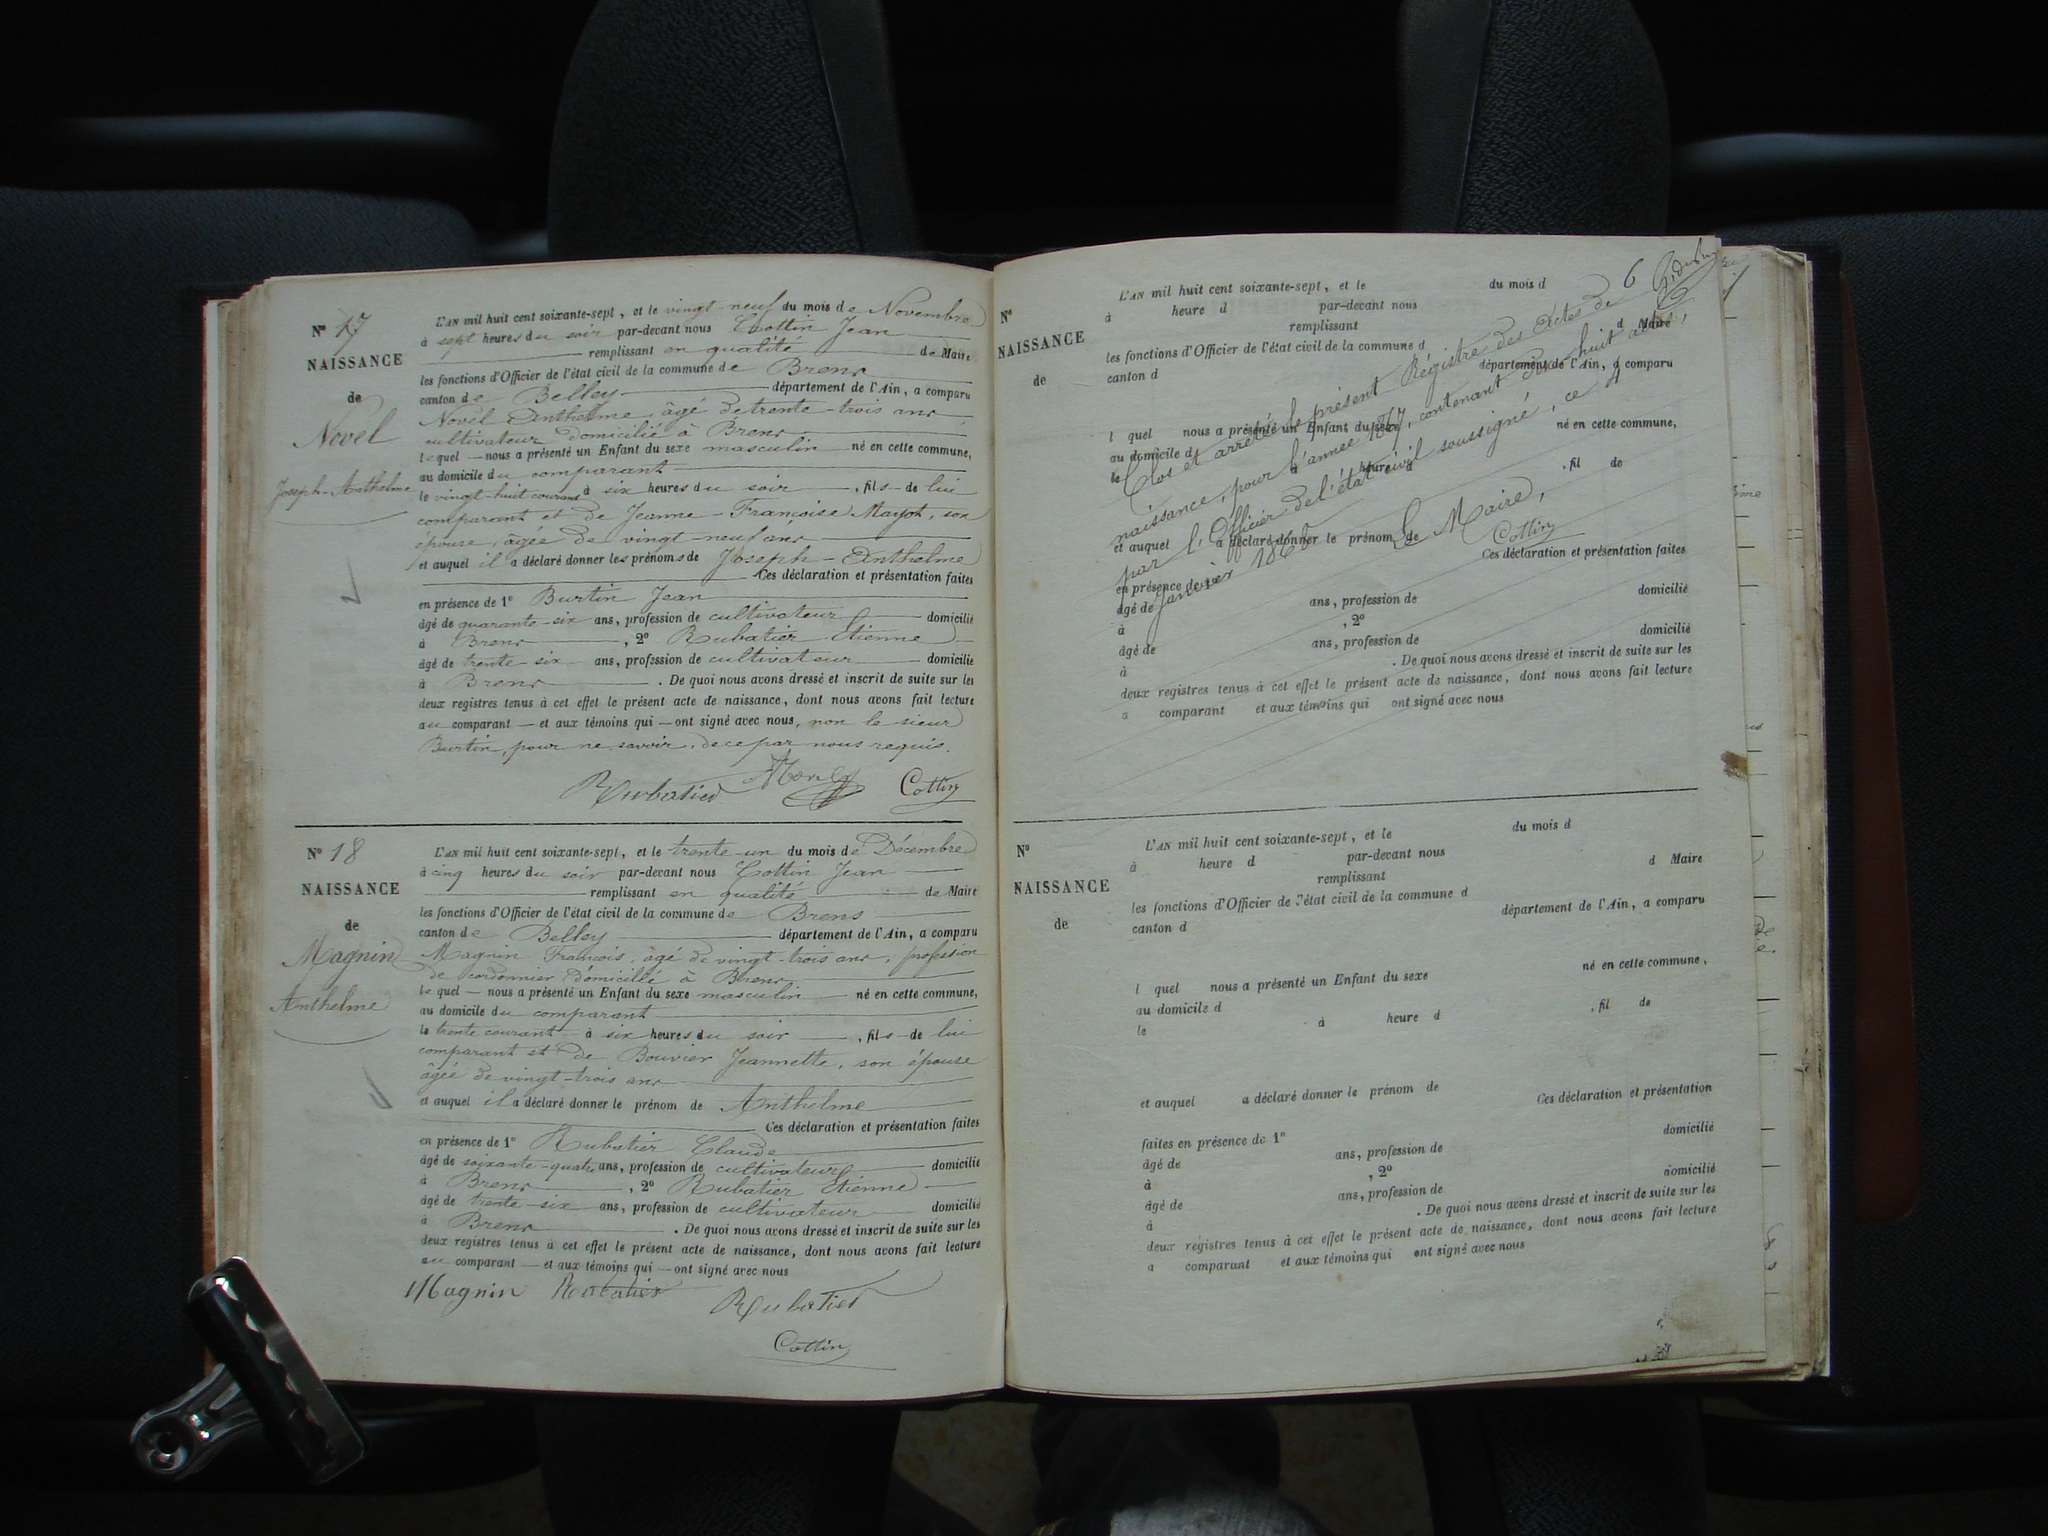 N° 17
NAISSANCE
de
Novel
Joseph-Anthelme
L'AN mil huit cent soixante-sept, et le vingt-neuf du mois de Novembre
à sept heures du soir par-devant nous Cottin Jean
remplissant en qualité de Maire
les fonctions d'Officier de l'état civil de la commune de Brens
canton de Belley département de l'Ain, a comparu
Novel Anthelme, âgé de trente-trois ans
cultivateur domicilié à Brens
lequel nous a présenté un Enfant du sexe masculin né en cette commune,
au domicile du comparant
le vingt-huit courant à six heures du soir, fils de lui
comparant et de Jeanne-Françoise Mayot, son
épouse, âgée de vingt-neuf ans
et auquel il a déclaré donner les prénoms de Joseph-Anthelme
Ces déclaration et présentation faites
en présence de 1° Burtin Jean
âgé de quarante-six ans, profession de cultivateur domicilié
à Brens, 2° Rubatier Etienne
âgé de trente-six ans, profession de cultivateur domicilié
à Brens. De quoi nous avons dressé et inscrit de suite sur les
deux registres tenus à cet effet le présent acte de naissance, dont nous avons fait lecture
au comparant et aux témoins qui ont signé avec nous, non le sieur
Burtin, pour ne savoir, de ce par nous requis.
Rubatier Cottin
N° 18
NAISSANCE
de
Magnin
Anthelme
L'AN mil huit cent soixante-sept, et le trente-un du mois de Décembre
à cinq heures du soir par-devant nous Cottin Jean
remplissant en qualité de Maire
les fonctions d'Officier de l'état civil de la commune de Brens
canton de Belley département de l'Ain, a comparu
Magnin François, âgé de vingt-trois ans, profession
de cordonnier domicilié à Brens
lequel nous a présenté un Enfant du sexe masculin né en cette commune,
au domicile du comparant
le trente courant à six heures du soir, fils de lui
comparant et de Bouvier Jeannette, son épouse
âgée de vingt-trois ans
et auquel il a déclaré donner le prénom de Anthelme
Ces déclaration et présentation faites
en présence de 1° Rubatier Claude
âgé de soixante-quatre ans, profession de cultivateur domicilié
à Brens, 2° Rubatier Etienne
âgé de trente-six ans, profession de cultivateur domicilié
à Brens. De quoi nous avons dressé et inscrit de suite sur les
deux registres tenus à cet effet le présent acte de naissance, dont nous avons fait lecture
au comparant et aux témoins qui ont signé avec nous
Magnin Rubatier Rubatier
Cottin
6
N°
NAISSANCE
de
L'AN mil huit cent soixante-sept, et le du mois d
à heure d par-devant nous
remplissant d Maire
les fonctions d'Officier de l'état civil de la commune d
canton d département de l'Ain, a comparu
l quel nous a présenté un Enfant du sexe né en cette commune,
au domicile d
le à heure d , fil de
et auquel a déclaré donner le prénom de
Ces déclaration et présentation faites
en présence de 1°
âgé de ans, profession de domicilié
à , 2°
âgé de ans, profession de domicilié
à . De quoi nous avons dressé et inscrit de suite sur les
deux registres tenus à cet effet le présent acte de naissance, dont nous avons fait lecture
a comparant et aux témoins qui ont signé avec nous
Clos et arrêté le présent Régistre des Actes de
naissance, pour l'année 1867, contenant dix-huit actes,
par l'Officier de l'état civil soussigné, ce 1er
Janvier 1868
Le Maire,
Cottin
N°
NAISSANCE
de
L'AN mil huit cent soixante-sept, et le du mois d
à heure d par-devant nous
remplissant d Maire
les fonctions d'Officier de l'état civil de la commune d
canton d département de l'Ain, a comparu
l quel nous a présenté un Enfant du sexe né en cette commune,
au domicile d
le à heure d , fil de
et auquel a déclaré donner le prénom de
Ces déclaration et présentation
faites en présence de 1°
âgé de ans, profession de domicilié
à , 2°
âgé de ans, profession de domicilié
à . De quoi nous avons dressé et inscrit de suite sur les
deux régistres tenus à cet effet le présent acte de naissance, dont nous avons fait lecture
a comparant et aux témoins qui ont signé avec nous